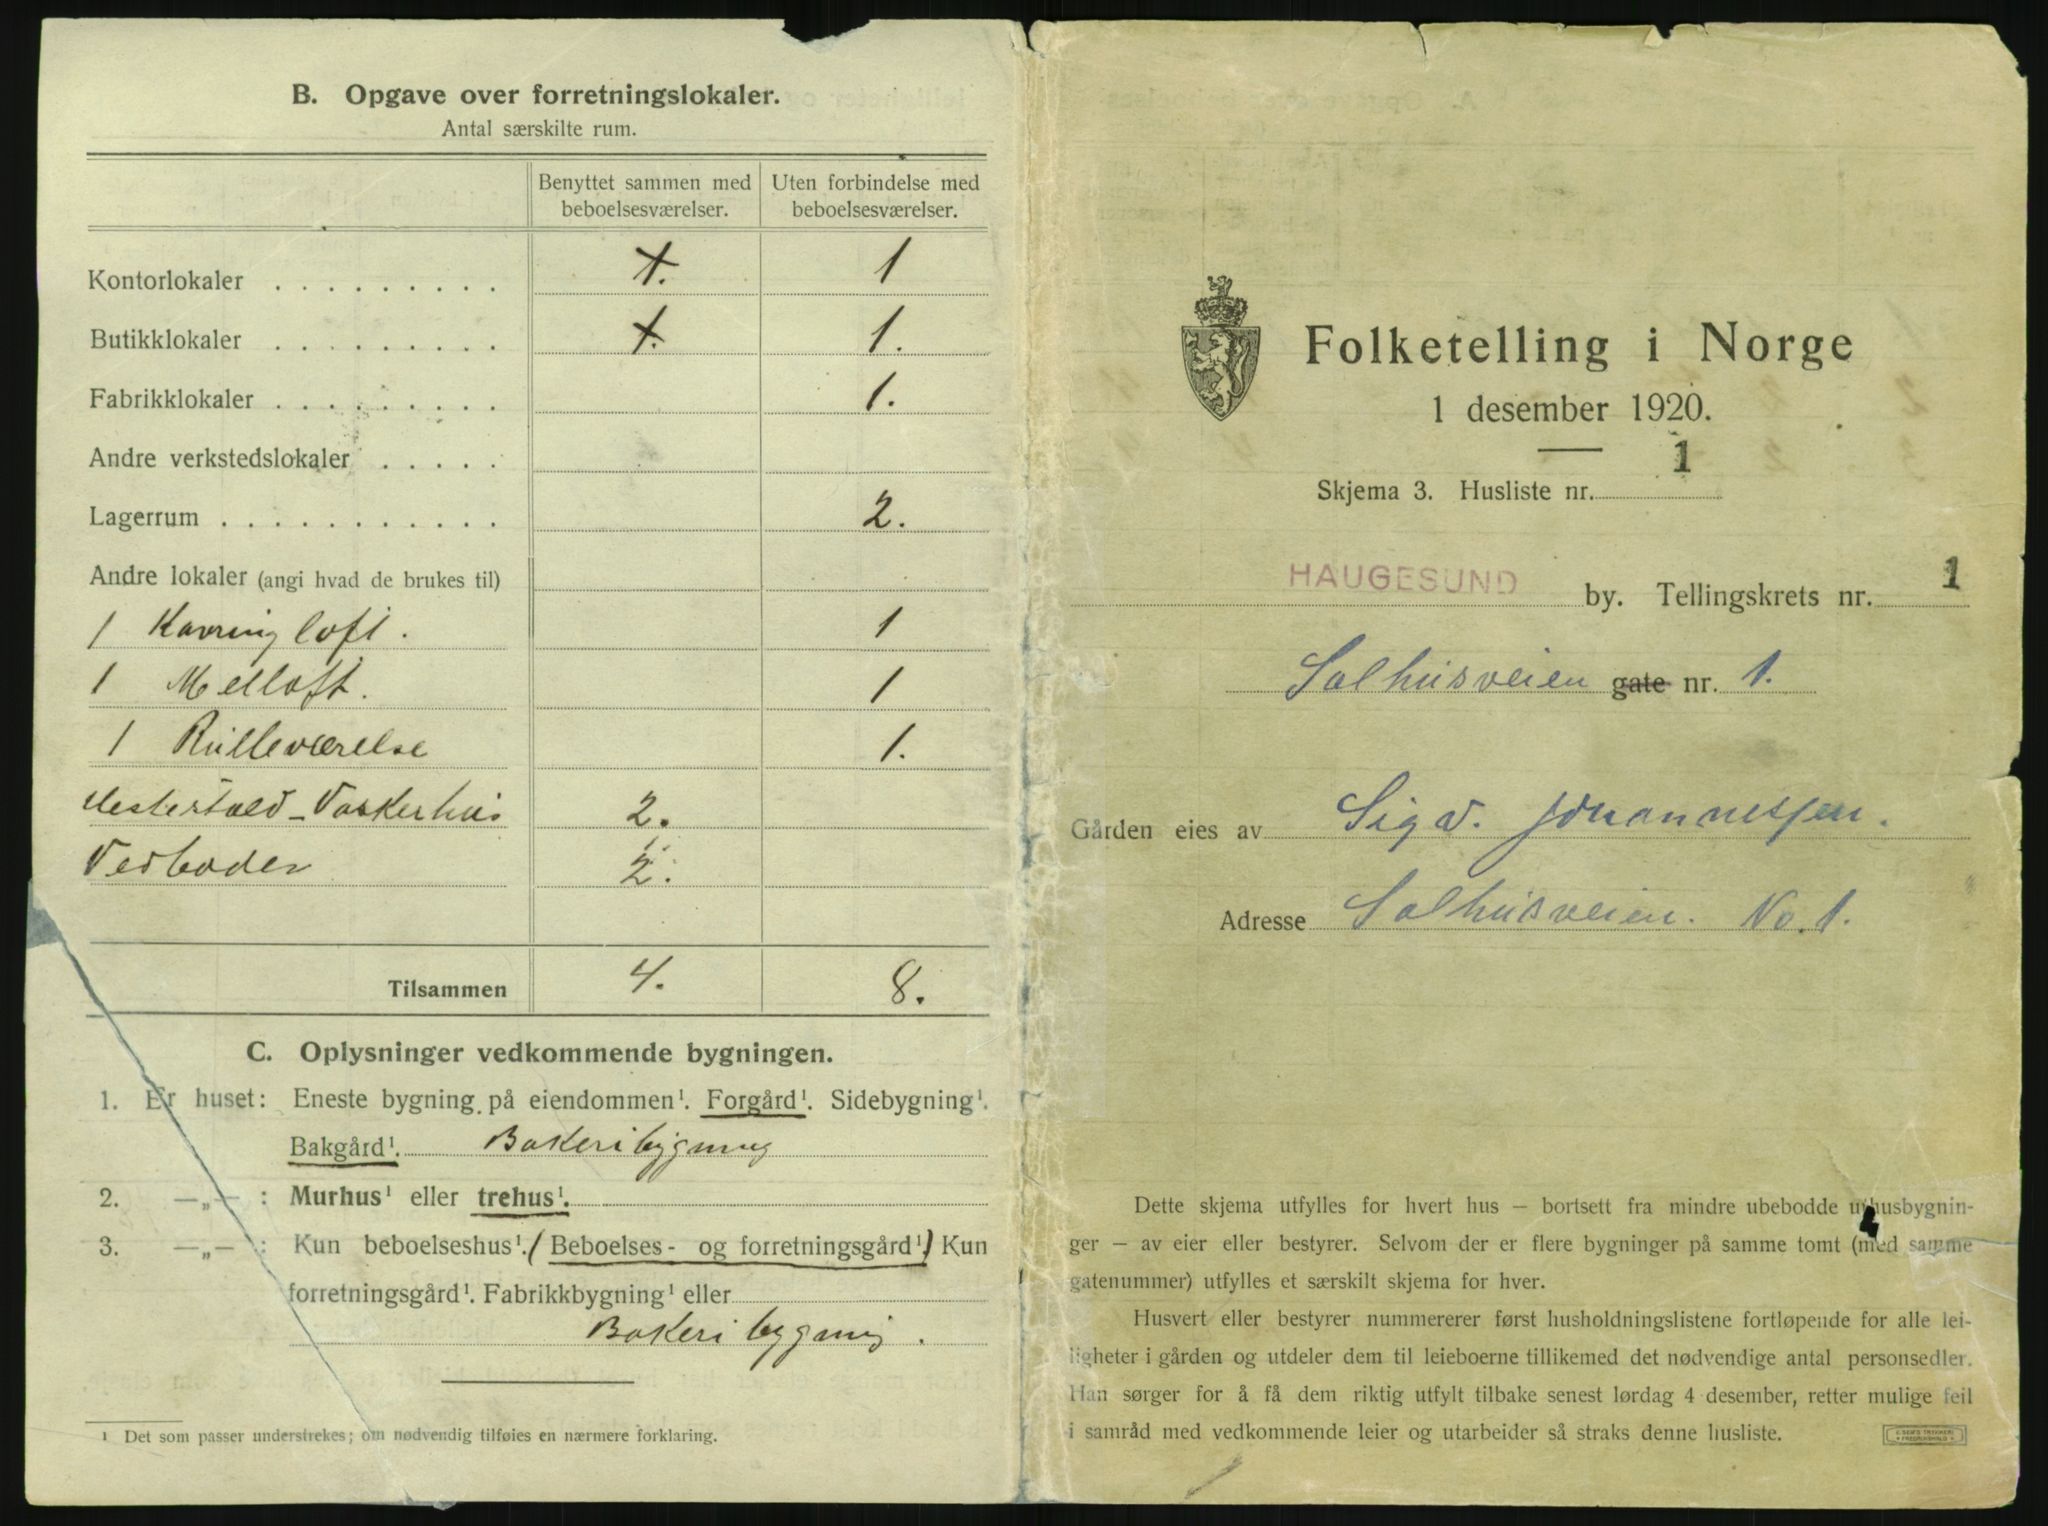 B. Opgave over forretningslokaler.
Antal særskilte rum.
Benyttet sammen med beboelsesværelser.
Uten forbindelse med beboelsesværelser.
Kontorlokaler . . . . . . . . . 1. 1
Butikklokaler . . . . . . . . . 1. 1.
Fabrikklokaler . . . . . . . . . 1.
Andre verkstedslokaler . . . . .
Lagerrum . . . . . . . . . . . 2.
Andre lokaler (angi hvad de brukes til)
1 Kavringloft. 1
1 Melloft. 1
1 Rulleværelse 1.
Hestestald - Vaskerhus 2.
Vedboder 2.
Tilsammen 4. 8.
C. Oplysninger vedkommende bygningen.
1. Er huset: Eneste bygning på eiendommen¹. Forgård¹. Sidebygning¹.
Bakgård¹. Bakeribygning
2. —„— : Murhus¹ eller trehus¹.
3. —„— : Kun beboelseshus¹. (Beboelses- og forretningsgård¹.) Kun
forretningsgård¹. Fabrikkbygning¹ eller
Bakeribygning.
¹ Det som passer understrekes; om nødvendig tilføies en nærmere forklaring.
Folketelling i Norge
1 desember 1920.
Skjema 3. Husliste nr. 1
HAUGESUND by. Tellingskrets nr. 1
Salhusveien gate nr. 1.
Gården eies av Sigv. Johannessen.
Adresse Salhusveien. No. 1.
Dette skjema utfylles for hvert hus — bortsett fra mindre ubebodde uthusbygnin-
ger — av eier eller bestyrer. Selvom der er flere bygninger på samme tomt (med samme
gatenummer) utfylles et særskilt skjema for hver.
Husvert eller bestyrer nummererer først husholdningslistene fortløpende for alle lei-
ligheter i gården og utdeler dem til leieboerne tillikemed det nødvendige antal personsedler.
Han sørger for å få dem riktig utfylt tilbake senest lørdag 4 desember, retter mulige feil
i samråd med vedkommende leier og utarbeider så straks denne husliste.